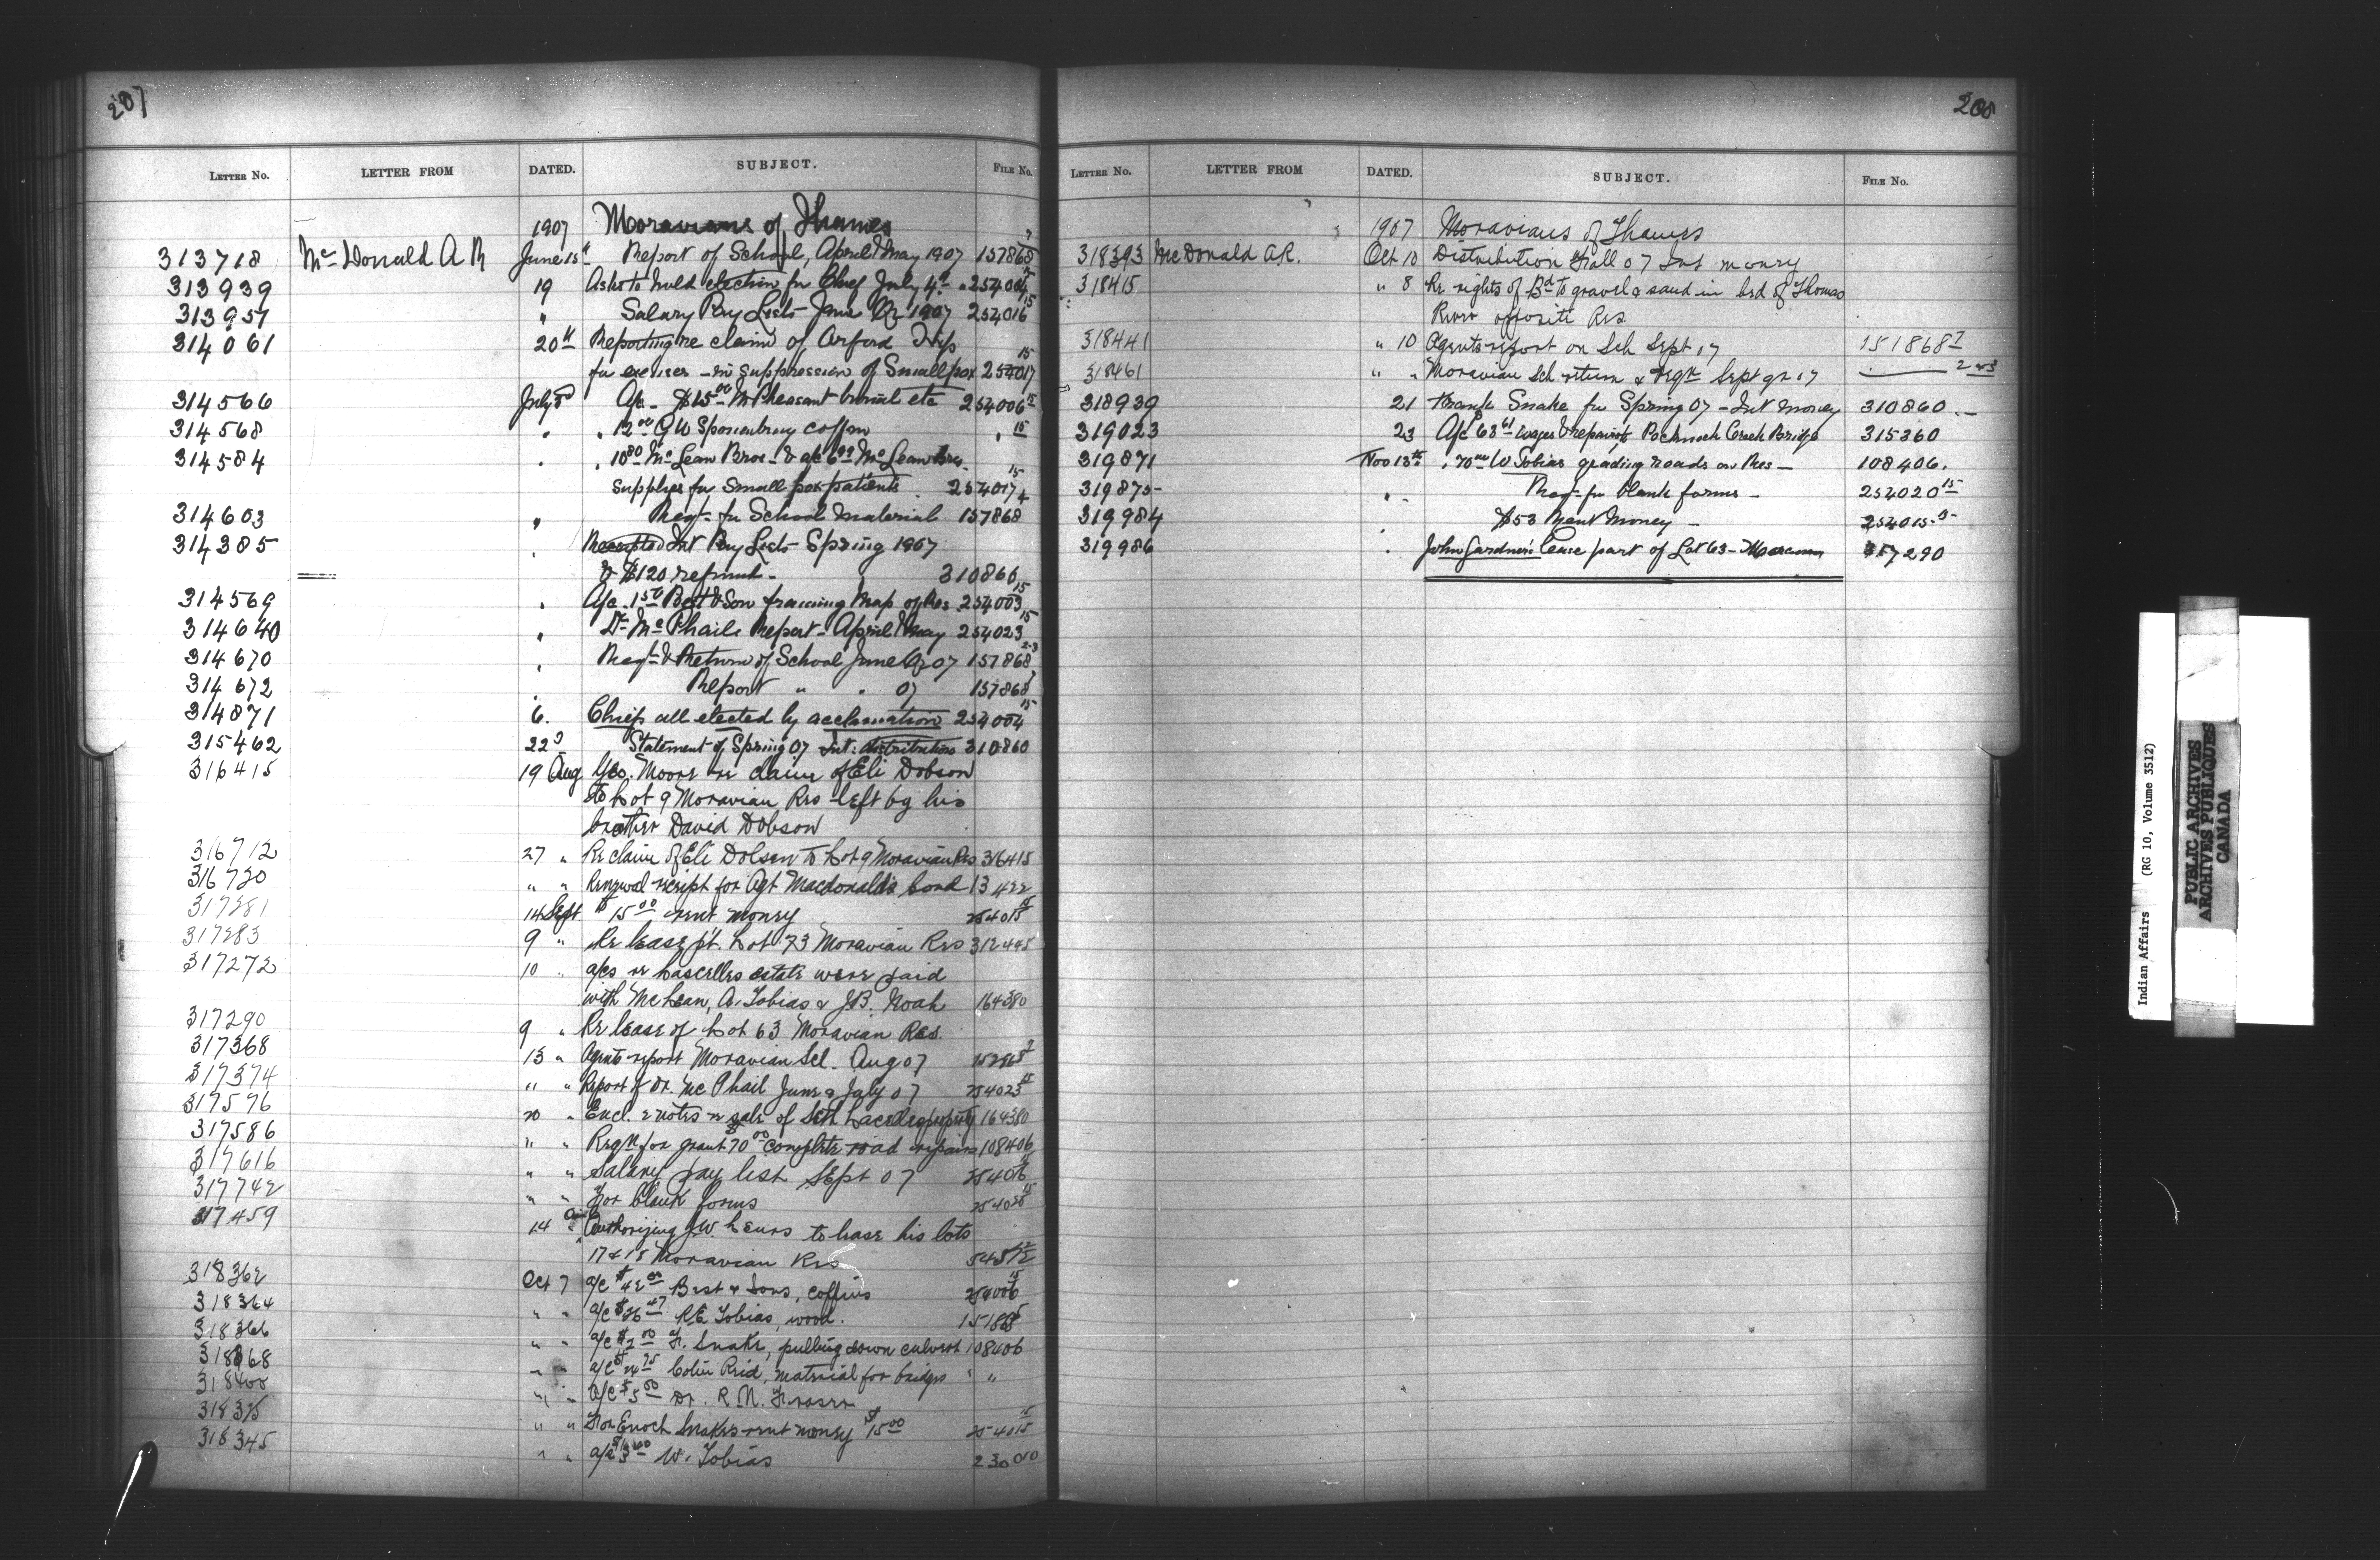 207
LETTER NO. LETTER FROM DATED. SUBJECT. FILE NO.
1907 Moravians of Thames
313718 McDonald A R June 15th Report of School, April & May 1907 157868
313939 19 Asks to hold election for Chief July 4th 254004 15
313957 " Salary Pay Lists June Qr 1907 254016 15
314061 20th Reporting re claim of Orford Twp
for expenses in suppression of Smallpox 254017 15
314566 July 3d A/c $15.00 M Pheasant burial etc 254006 15
314568 " " 12.00 G W Sponenburg coffin " 15
314584 " " McLean Bros & a/c McLean Bros
supplies for Small pox patients 254017 15
314603 " Reqt for School Material 157868 4
314385 " Receipted Int Pay Lists Spring 1907
& $120 refund 310860
314569 " A/c 1.50 Best & Son framing Map of Res 254003 15
314640 " Dr McPhails Report April & May 254023 15
314670 " Reqt & Return of School June Qr 07 157868 2-3
314672 Report " " 07 157868
314871 6. Chiefs all elected by acclamation 254004 15
315462 22d Statement of Spring 07 Int: distribution 310860
316415 19 Aug Geo. Moore re claim of Eli Dobson
to Lot 9 Moravian Res left by his
brother David Dobson
316712 27 " Re claim of Eli Dolson to Lot 9 Moravian Res 316415
316720 " " Renewal receipt for Agt Macdonald's bond 13422
317281 14 Sept $15.00 rent money 254015 15
317283 9 " Re lease pt. Lot 73 Moravian Res 312445
317272 10 " a/cs re Lascelles estate were paid
with McLean, A. Tobias & J.B. Noah 164380
317290 9 " Re lease of Lot 63 Moravian Res
317368 13 " Agents report Moravian Scl. Aug 07
317374 " " Report of Dr. McPhail June & July 07 254023 15
317576 20 " Encl. 2 notes re sale of Seth property 164380
317586 " " Reqn for grant 70.00 complete road repairs 108406
317616 " " Salary pay list Sept 07 254016 15
317742 " " For blank forms 15
317459 14 " Authorizing J.W. to lease his lots
17 & 18 Moravian Res
318362 Oct 7 a/c $42.00 Best & Sons, coffins 254006 15
318364 " " a/c $ R.E. Tobias, wood.
318366 " " a/c $2.00 F. Snake, pulling down culvert 108406
318368 " " a/c $ Colin Reid, material for bridges " "
318400 " " a/c $5.00 Dr. R. N. Fraser
318375 " " For Enoch Snakes rent money $15.00 254015 15
318345 " " a/c W. Tobias 230010
208
LETTER NO. LETTER FROM DATED. SUBJECT. FILE NO.
1907 Moravians of Thames
318393 McDonald A.R. Oct 10 Distribution Fall 07 Int money
318415 " 8 Re rights of Bd to gravel & sand in bed of Thomas
River opposite Res
318441 " 10 Agents report on Sch Sept 17 151868
318461 " " Moravian Sch return & reqn Sept qr 17 2 & 3
318939 21 Frank Snake for Spring 07 - Int money 310860
319023 23 A/c 68.61 wages & repairing Bridge 315360
319871 Nov 13th " 70.00 W Tobias grading roads on Res - 108406.
319875 " Reqt for blank forms - 254020 15
319984 $53 Rent Money - 254015 15
319986 " John Gardner's lease part of Lot 63 - Moravian 317290
Indian Affairs (RG 10, Volume 3512)
PUBLIC ARCHIVES
ARCHIVES PUBLIQUES
CANADA